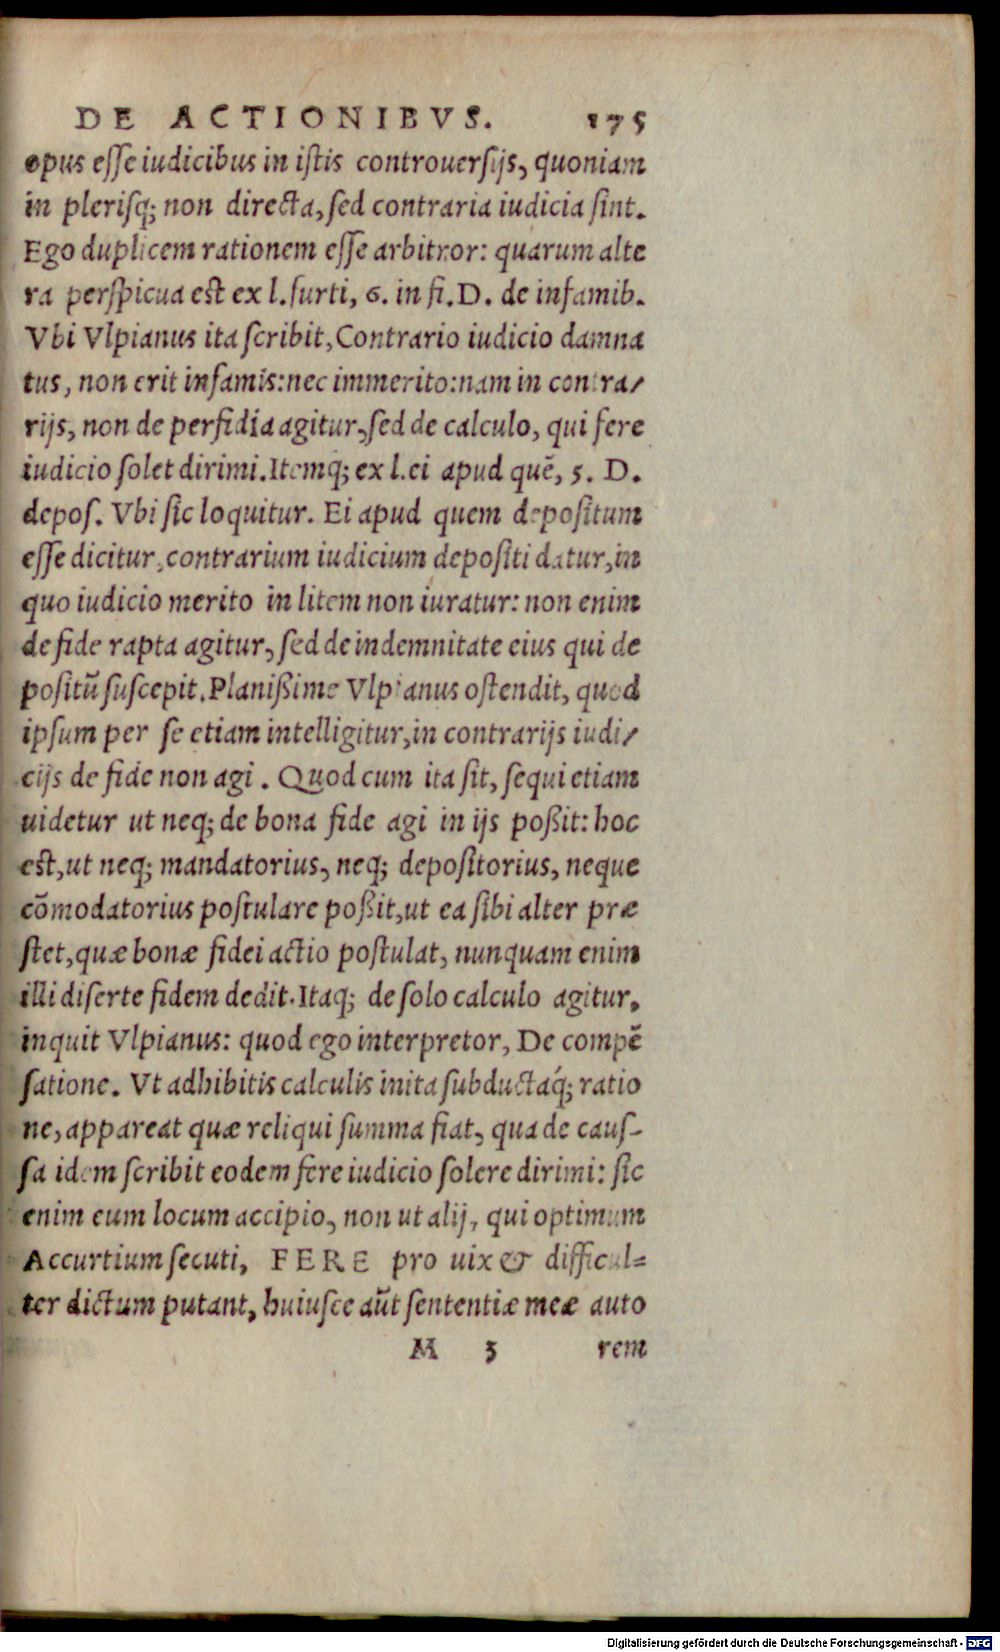 DE ACTIONIBVS. 175
opus esse iudicibus in istis controuersijs, quoniam
in plerisq; non directa, sed contraria iudicia sint.
Ego duplicem rationem esse arbitror: quarum alte
ra perspicua est ex l. furti, 6. in fi. D. de infamib.
Vbi Vlpianus ita scribit, Contrario iudicio damna
tus, non erit infamis: nec immerito: nam in contra/
rijs, non de perfidia agitur, sed de calculo, qui fere
iudicio solet dirimi. Itemq; ex l. ei apud quē, 5. D.
depos. Vbi sic loquitur. Ei apud quem depositum
esse dicitur, contrarium iudicium depositi datur, in
quo iudicio merito in litem non iuratur: non enim
de fide rapta agitur, sed de indemnitate eius qui de
positū suscepit. Planißime Vlpianus ostendit, quod
ipsum per se etiam intelligitur, in contrarijs iudi/
cijs de fide non agi. Quod cum ita sit, sequi etiam
uidetur ut neq; de bona fide agi in ijs poßit: hoc
est, ut neq; mandatorius, neq; depositorius, neque
cōmodatorius postulare poßit, ut ea sibi alter præ
stet, quæ bonæ fidei actio postulat, nunquam enim
illi diserte fidem dedit. Itaq; de solo calculo agitur,
inquit Vlpianus: quod ego interpretor, De compē
satione. Vt adhibitis calculis inita subductaq́; ratio
ne, appareat quæ reliqui summa fiat, qua de caus-
sa idem scribit eodem fere iudicio solere dirimi: sic
enim eum locum accipio, non ut alij, qui optimum
Accurtium secuti, FERE pro uix & difficul=
ter dictum putant, huiusce aūt sententiæ meæ auto
M 3 rem
Digitalisierung gefördert durch die Deutsche Forschungsgemeinschaft - DFG